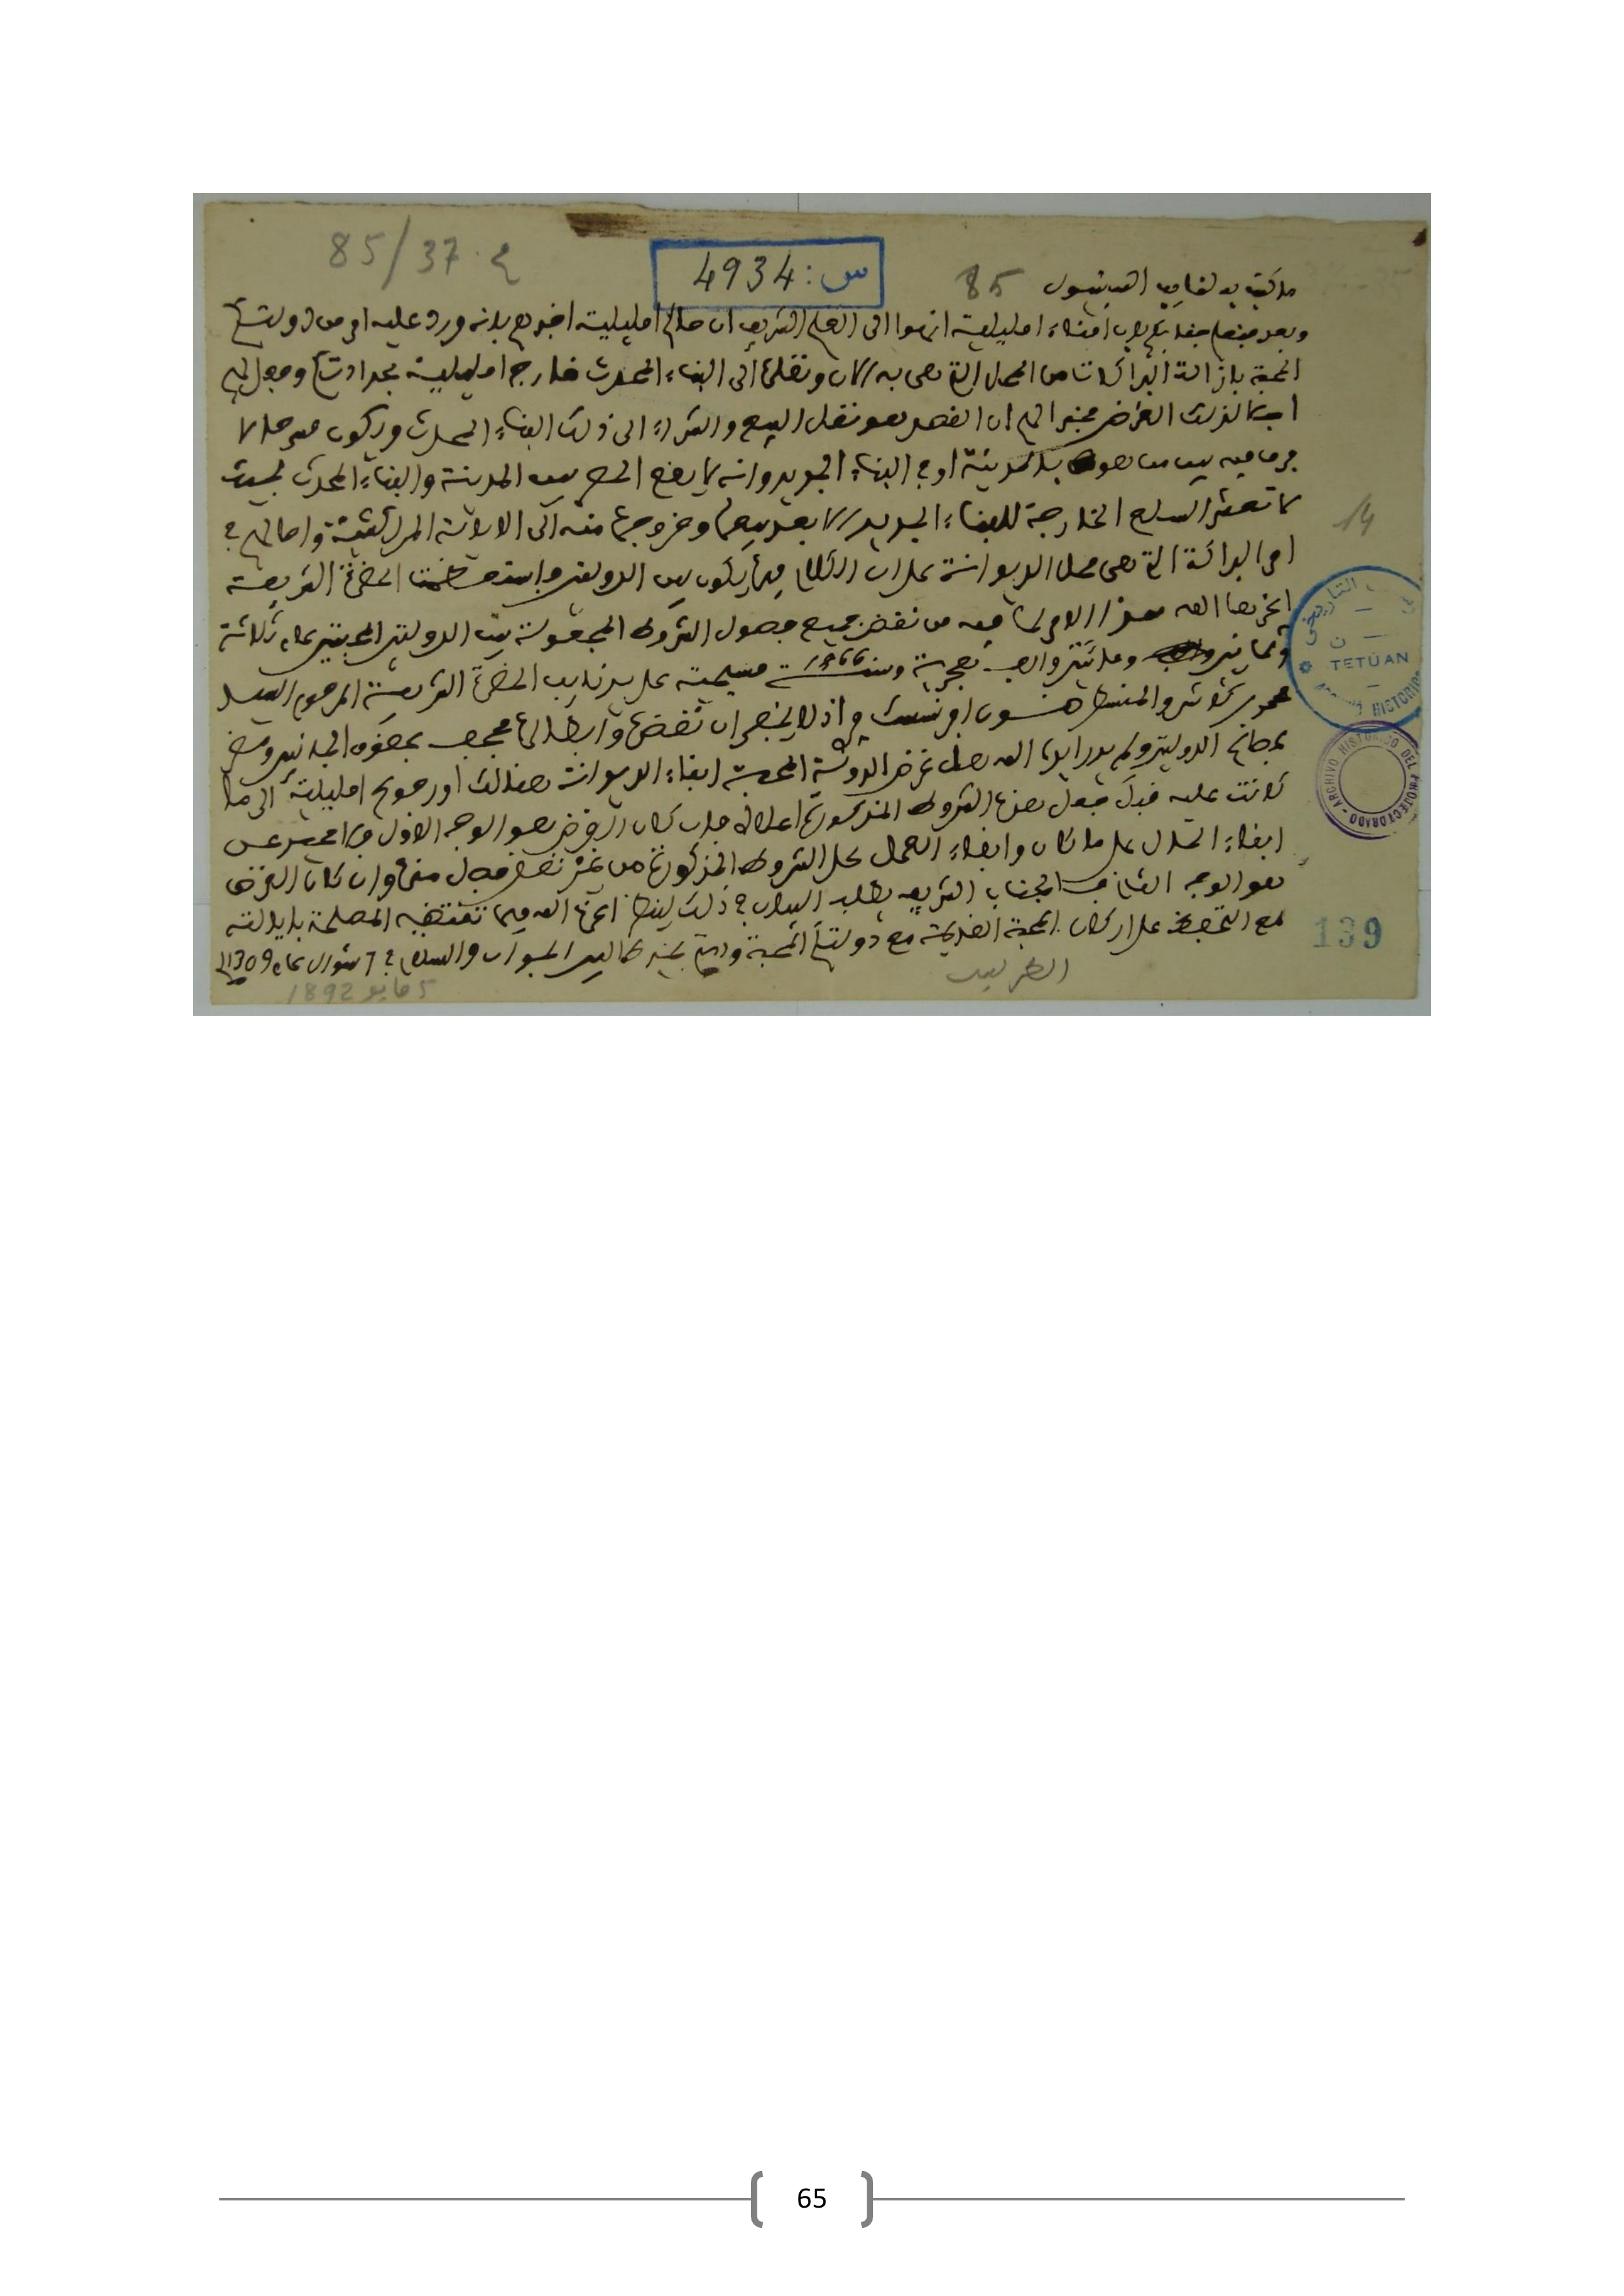 85/37.ع
س: 4934
ما كتب به لنايب اصبنيول 85
وبعد فقد بلغ امناء امليلية انهوا الى العلم الشريف ان حاكم امليلية اخبرهم بانه ورد عليه امر من دولتكم
المحبة بازالة البراكة من المحل التي هي به الان ونقلها الى البناء المحدث خارج امليلية بحدادتكم وجعل لهم
لذلك الغرض مخبرا لهم ان القصد هو نقل البيع والشراء الى ذلك البناء المحدث
بالمدينة او في البناء الجديد وانه لا يقع بين المدينة والبناء المحدث بحيث
لا تعشر السلع الخارجة للبناء الجديد الا بعد بيعها وخروجها منه الى الايالة المراكشية واحالهم في
امر البراكة التي هي محل الديوانة على ان الكلام فيها يكون بين الدولتين واستعظمت الحضرة الشريفة
اعزها الله هذا الامر لما فيه من نقض جميع فصول الشروط المجعولة بين الدولتين المحبتين عام ثلاثة
وثمانين ومائتين والف هجرية وسنة 1866 مسيحية على يد نايب الحضرة الشريفة المرحوم السيد
محمد بركاش والمنسطر افرنسسك واذ لا يخفى ان نقضها وابطالها مجحف بحقوق الجانبين ومضر
بمصالح الدولتين ولم يدر ايدها الله هل غرض الدولة المحبة ابقاء الديوانة هنالك او رجوع امليلية الى ما
كانت عليه قبل قبول هذه الشروط المذكورة اعلاه فان كان الغرض هو الوجه الاول
ابقاء الحال على ما كان وابقاء العمل على الشروط المذكورة من غير نقض فصل منها وان كان الغرض
هو الوجه الثاني فالجناب الشريف يطلب البيان في ذلك لينظر اعزه الله فيما تقتضيه المصلحة بايالته
مع التحفظ على اركان المحبة القديمة مع دولتكم المحبة ودمتم بخير طالبين الجواب والسلام في 7 شوال عام 1309
الطريس
5 مايو 1892
14
139
TETÚAN
HISTORICO
ARCHIVO HISTORICO DEL PROTECTORADO
65